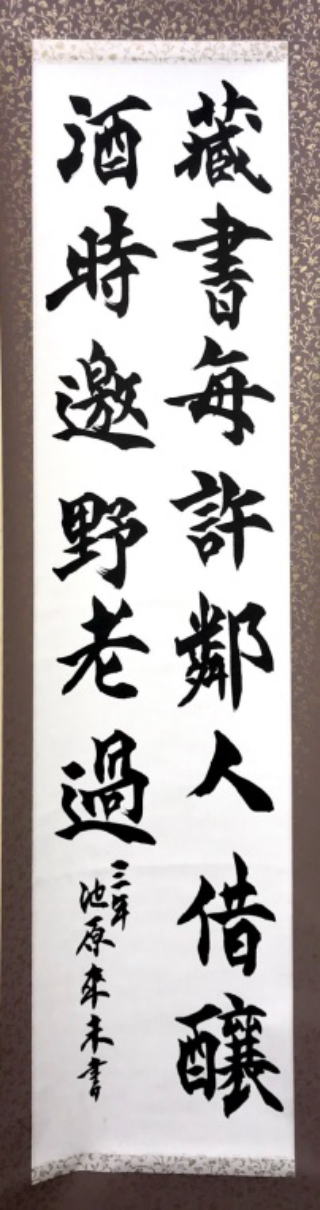 藏書每許鄰人借釀
酒時邀野老過
三年
池原來未書